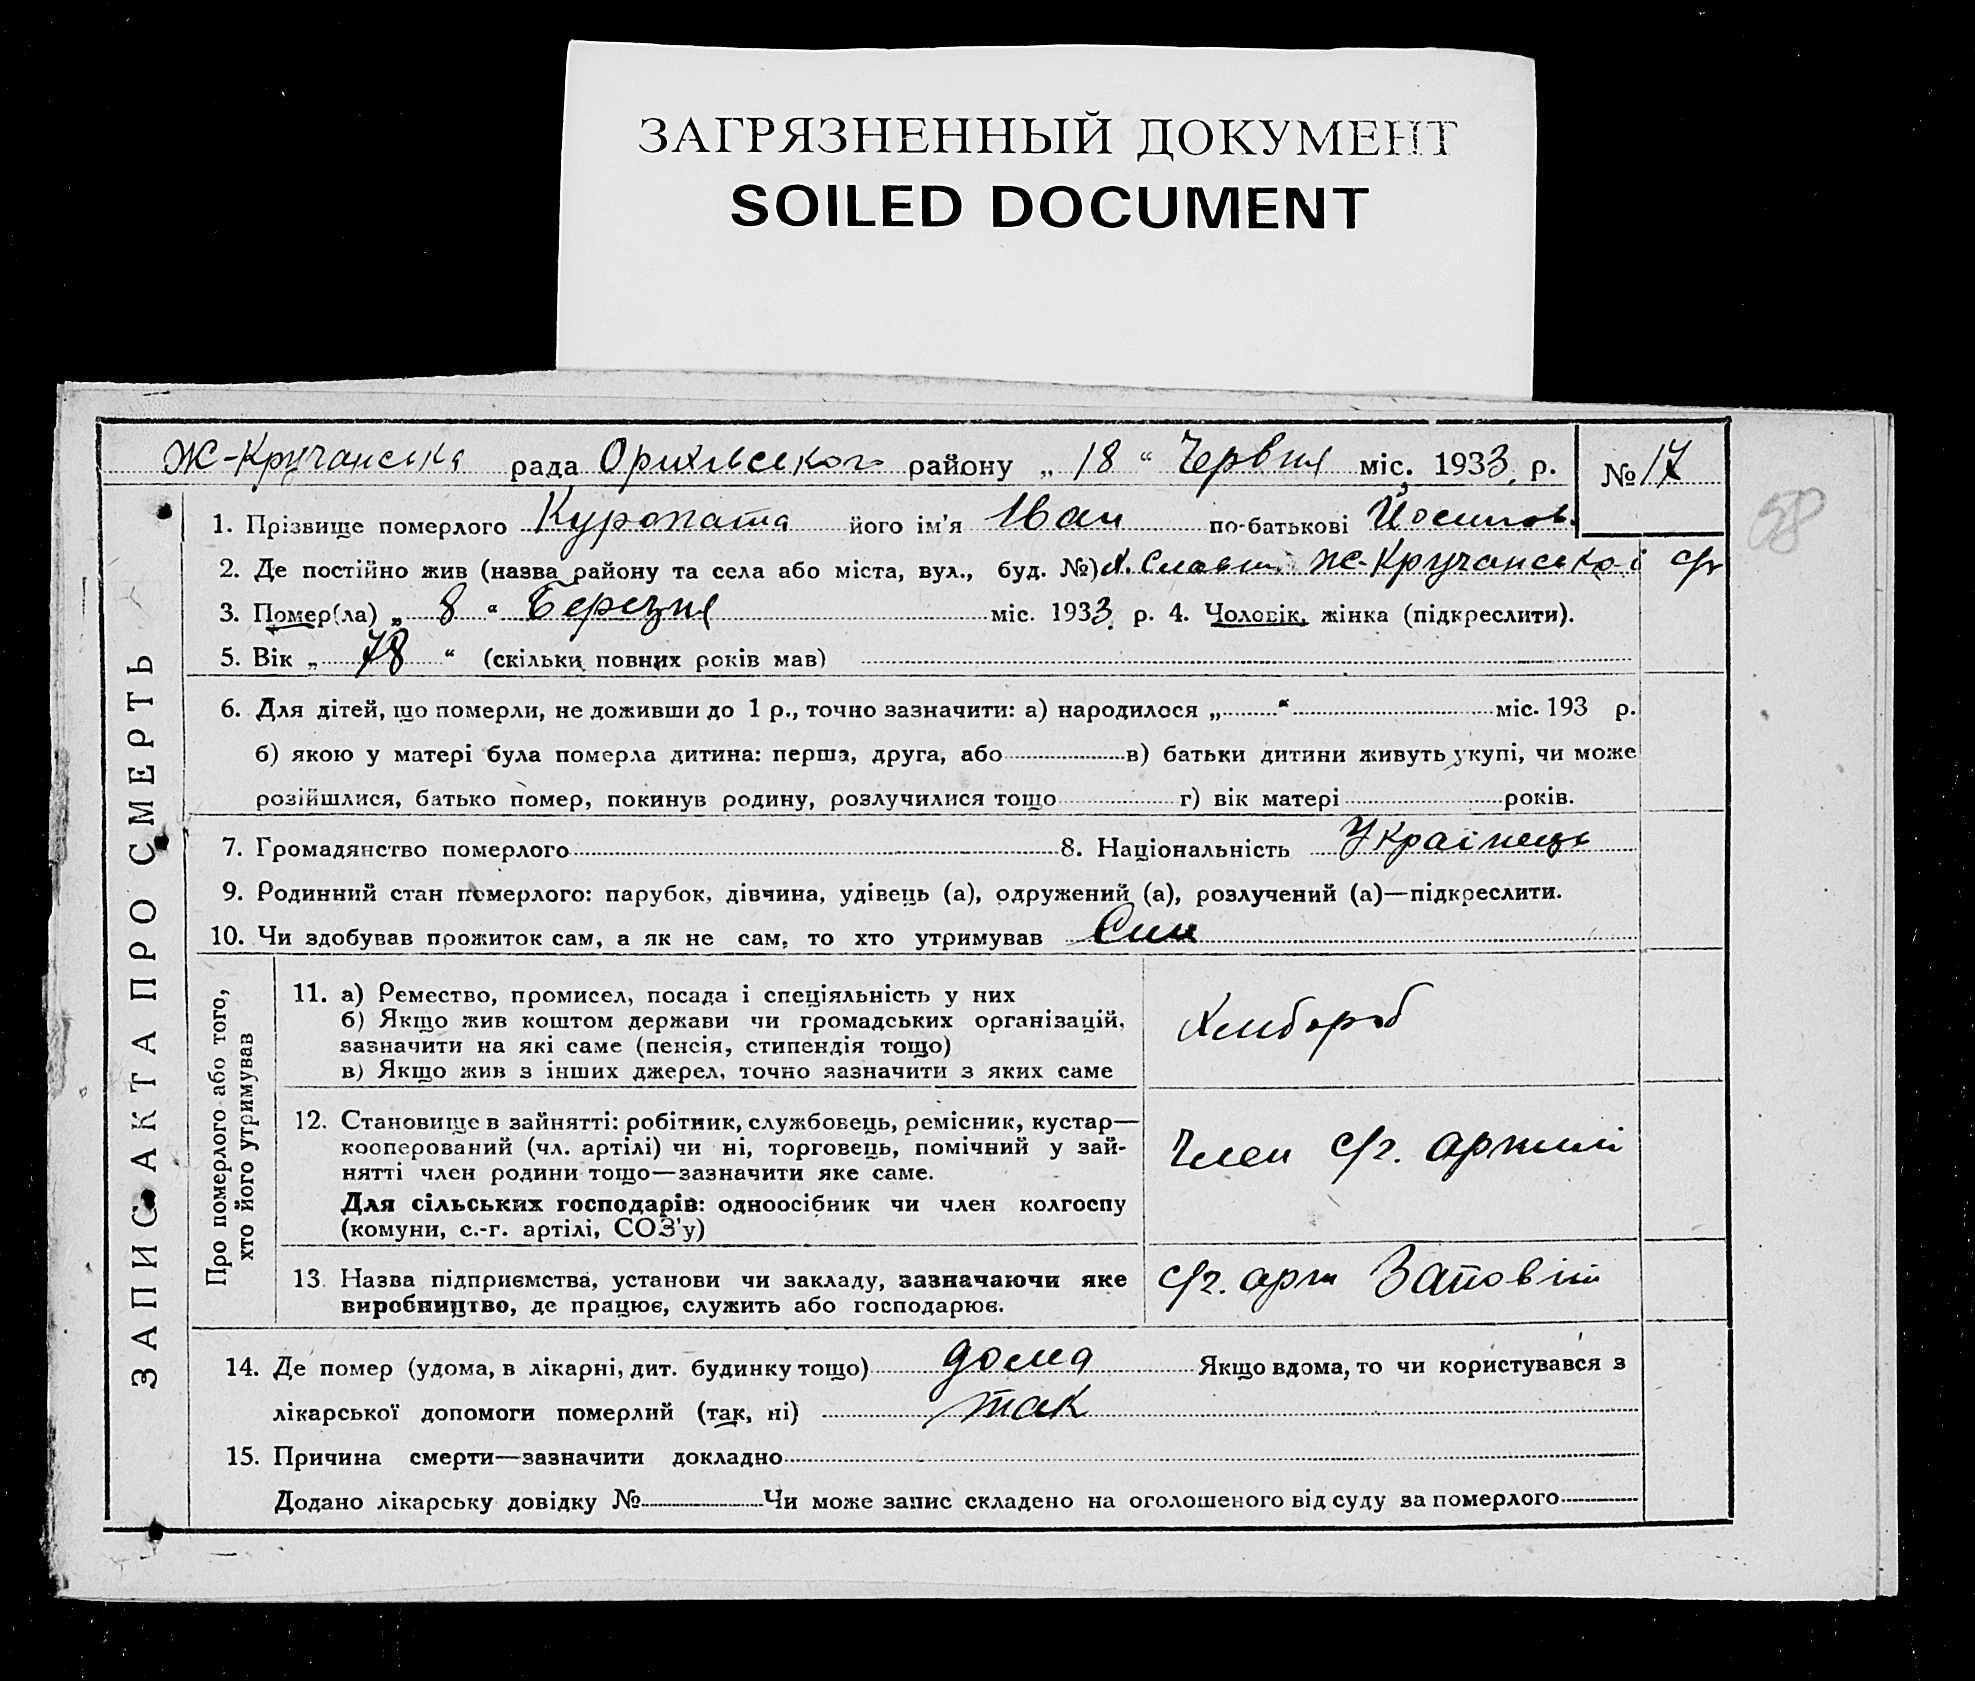 ЗАГРЯЗНЕННЫЙ ДОКУМЕНТ
SOILED DOCUMENT
Ж-Кручанська рада Оріхівського району „ 18 “ Червня міс. 1933 р. № 17
58
1. Прізвище померлого Куропата його ім'я Іван по-батькові Йосипов.
2. Де постійно жив (назва району та села або міста, вул., буд. №) х. Ж-Кручанської с/р
3. Помер(ла) „ 8 “ Березня міс. 1933 р. 4. Чоловік, жінка (підкреслити).
5. Вік „ 78 “ (скільки повних років мав)
6. Для дітей, що померли, не доживши до 1 р., точно зазначити: а) народилося „ “ міс. 193 р.
б) якою у матері була померла дитина: перша, друга, або в) батьки дитини живуть укупі, чи може
розійшлися, батько помер, покинув родину, розлучилися тощо г) вік матері років.
7. Громадянство померлого 8. Національність Українець
9. Родинний стан померлого: парубок, дівчина, удівець (а), одружений (а), розлучений (а)—підкреслити.
10. Чи здобував прожиток сам, а як не сам, то хто утримував Син
ЗАПИС АКТА ПРО СМЕРТЬ
Про померлого або того,
хто його утримував
11. а) Ремество, промисел, посада і спеціяльність у них
б) Якщо жив коштом держави чи громадських організацій,
зазначити на які саме (пенсія, стипендія тощо)
в) Якщо жив з інших джерел, точно зазначити з яких саме
Хлибороб
12. Становище в зайнятті: робітник, службовець, ремісник, кустар—
кооперований (чл. артілі) чи ні, торговець, помічний у зай-
нятті член родини тощо—зазначити яке саме.
Для сільських господарів: одноосібник чи член колгоспу
(комуни, с.-г. артілі, СОЗ'у)
Член с/г. артилі
13. Назва підприємства, установи чи закладу, зазначаючи яке
виробництво, де працює, служить або господарює.
с/г. арт Заповіт
14. Де помер (удома, в лікарні, дит. будинку тощо) дома Якщо вдома, то чи користувався з
лікарської допомоги померлий (так, ні) так
15. Причина смерти—зазначити докладно
Додано лікарську довідку № Чи може запис складено на оголошеного від суду за померлого